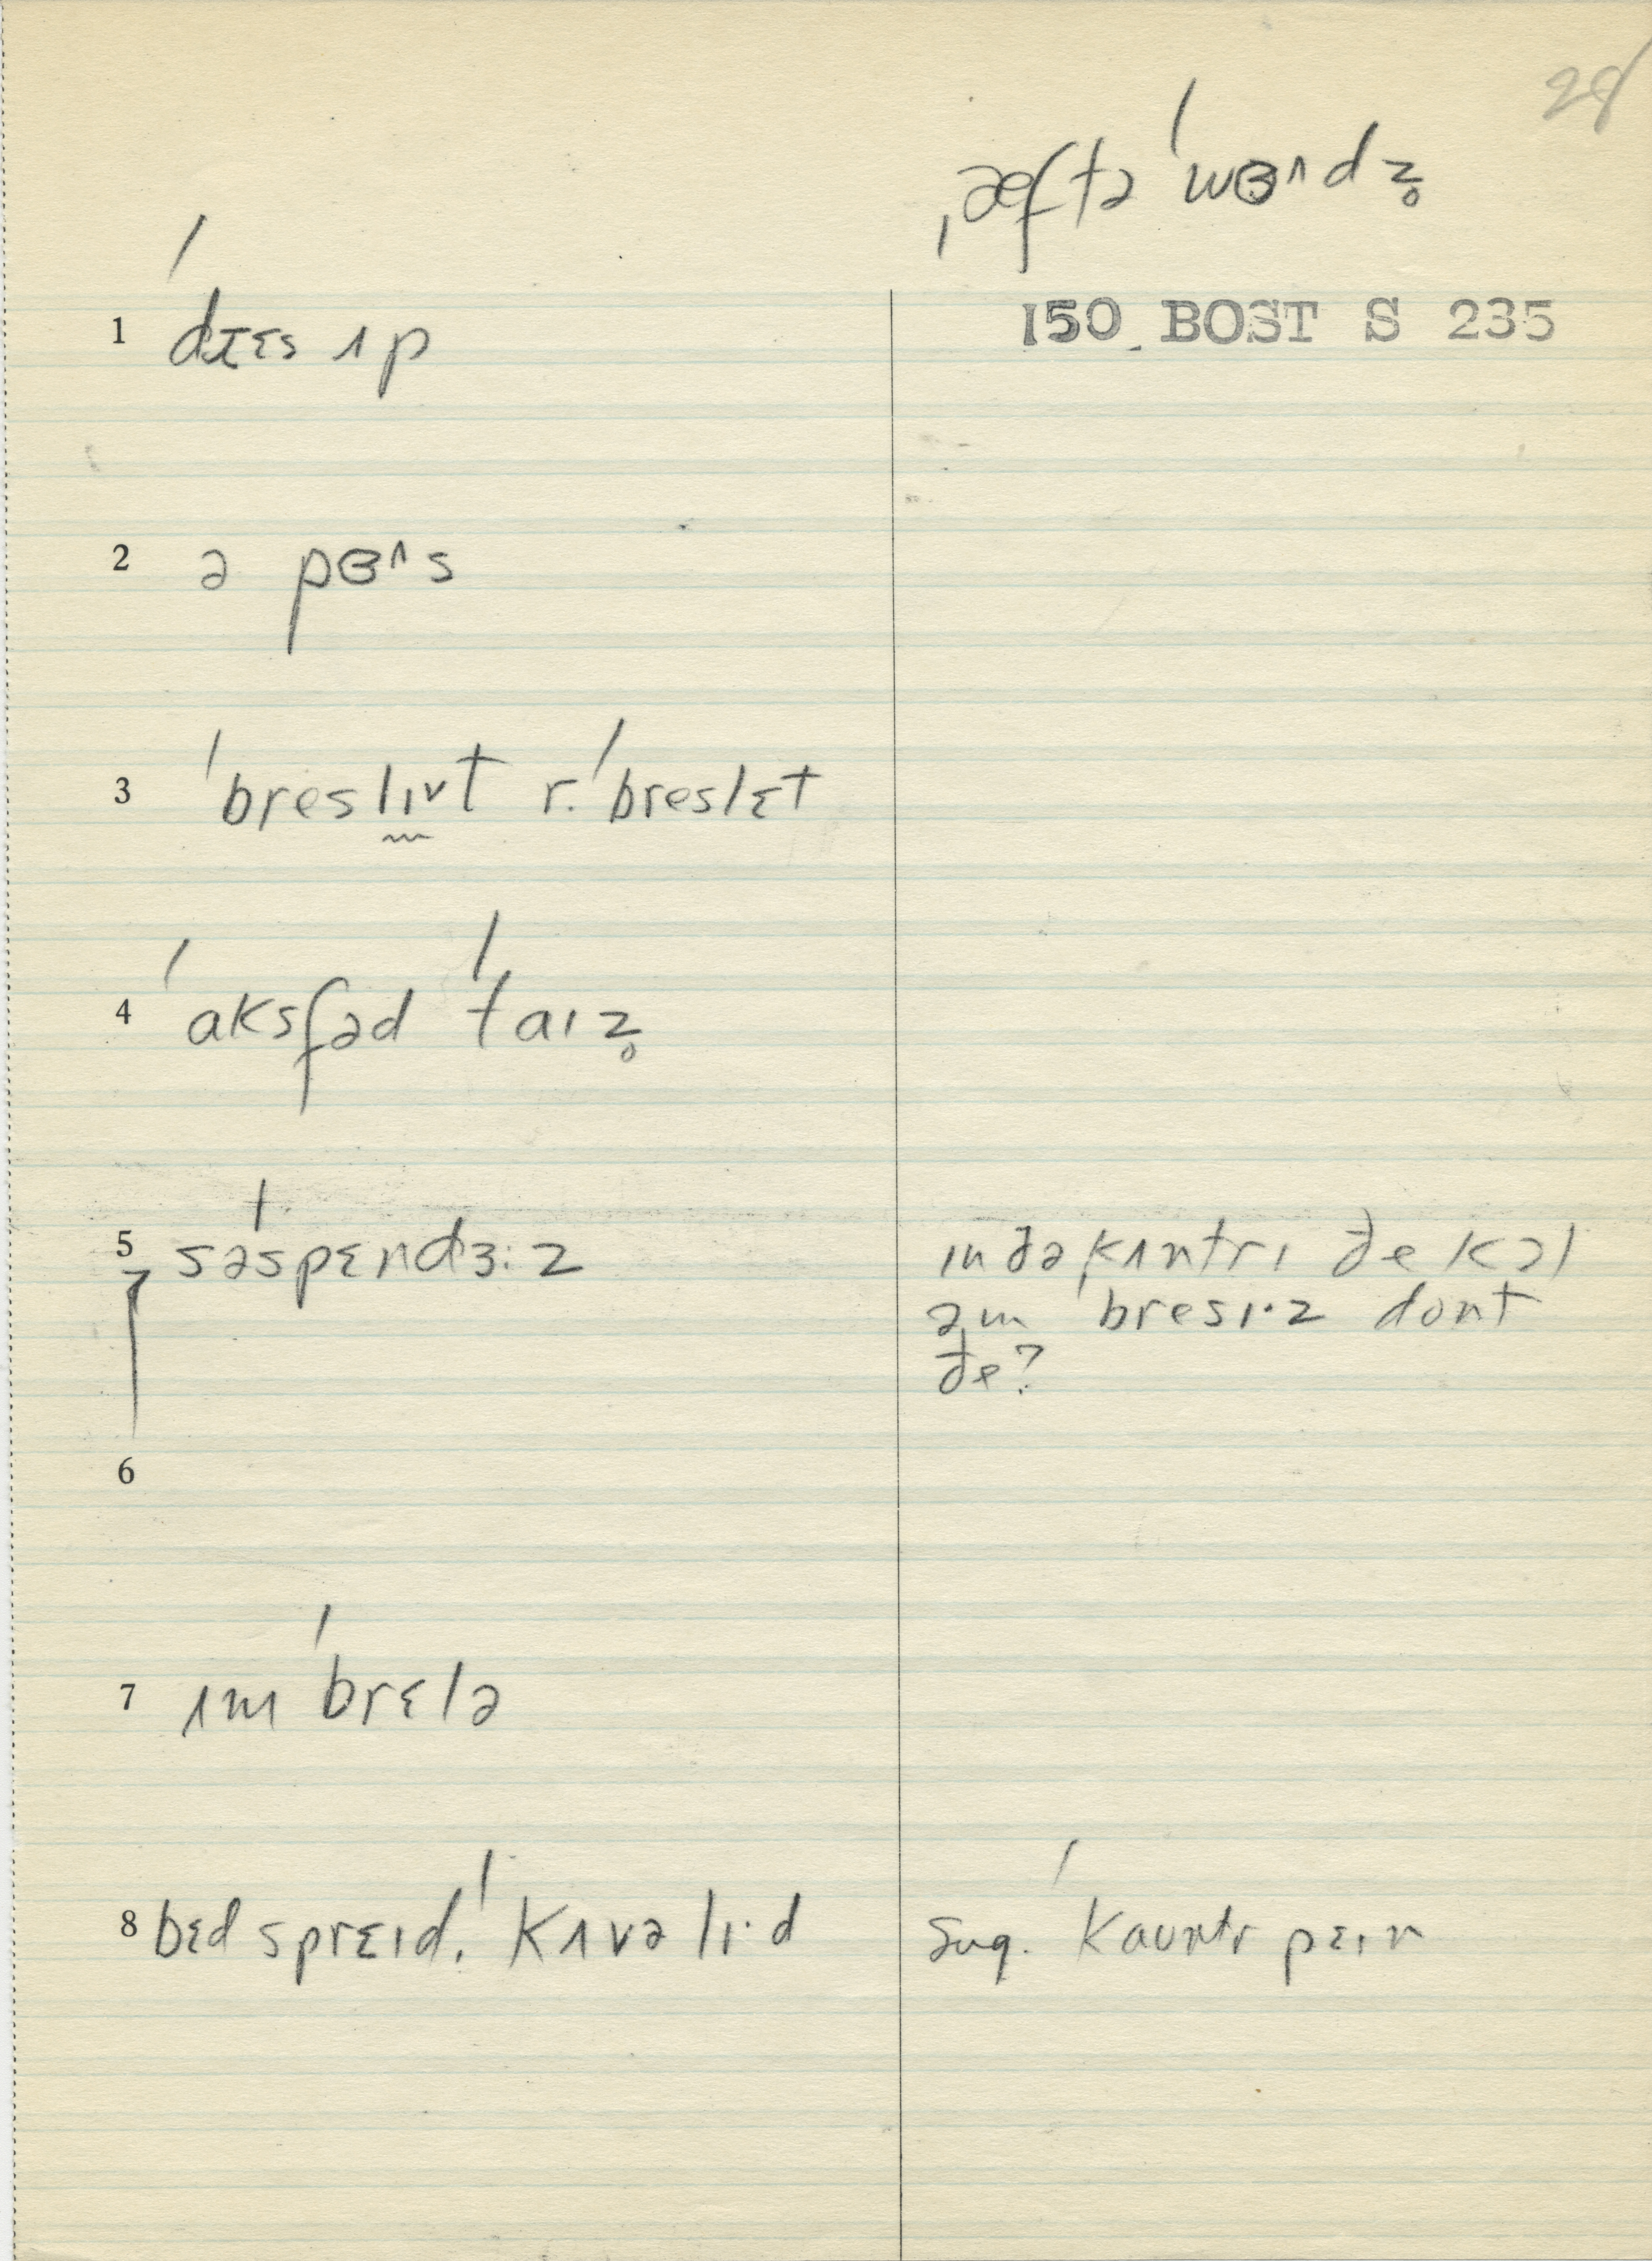 28
ˌæftəˈwɵʌdz̥
150 BOST S 235
1 dɪɛs ʌp
2 ə pɵʌs
3 ˈbreslɪvt r. ˈbreslɛt
4 ˈaksfəd ˈtaɪz̥
5 səspɛndɜ:z
ɪn ðə kʌntrɪ ðe kɔl
əm ˈbresɪ·z dont
ðe?
6
7 ʌmˈbrɛlə
8 bɛdsprɛɪd. ˈkʌvəlɪ·d
sug. ˈkaʊntrpɛɪn